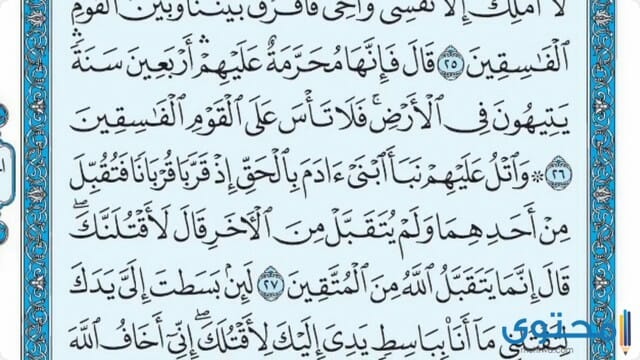 لَآ أَمْلِكُ إِلَّا نَفْسِى وَأَخِى فَٱفْرُقْ بَيْنَنَا وَبَيْنَ ٱلْقَوْمِ
ٱلْفَـٰسِقِينَ ٢٥ قَالَ فَإِنَّهَا مُحَرَّمَةٌ عَلَيْهِمْ ۛ أَرْبَعِينَ سَنَةً ۛ
يَتِيهُونَ فِى ٱلْأَرْضِ ۚ فَلَا تَأْسَ عَلَى ٱلْقَوْمِ ٱلْفَـٰسِقِينَ
٢٦ ۞ وَٱتْلُ عَلَيْهِمْ نَبَأَ ٱبْنَىْ ءَادَمَ بِٱلْحَقِّ إِذْ قَرَّبَا قُرْبَانًا فَتُقُبِّلَ
مِنْ أَحَدِهِمَا وَلَمْ يُتَقَبَّلْ مِنَ ٱلْـَٔاخَرِ قَالَ لَأَقْتُلَنَّكَ ۖ
قَالَ إِنَّمَا يَتَقَبَّلُ ٱللَّهُ مِنَ ٱلْمُتَّقِينَ ٢٧ لَئِنۢ بَسَطتَ إِلَىَّ يَدَكَ
لِتَقْتُلَنِى مَآ أَنَا۠ بِبَاسِطٍ يَدِىَ إِلَيْكَ لِأَقْتُلَكَ ۖ إِنِّىٓ أَخَافُ ٱللَّهَ
محتوى